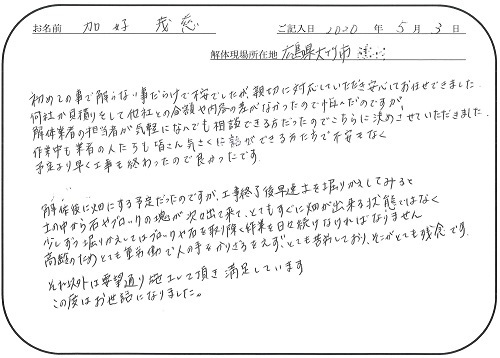 お名前 加好 茂 ご記入日 2020 年 5 月 3 日
解体現場所在地 広島県大竹市
初めての事で解らない事だらけで でしたが、親切に対応していただき安心してお任せできました。
何社か見積りをして他社との金額や内容の差がなかったので悩んだのですが
解体業者の担当者が気軽になんでも相談できる方だったのでこちらに決めさせていただきました。
作業中も業者の人たちも皆さん気さくに話ができる方たちで不安もなく
予定より早く工事も終わったので良かったです.
解体後に畑にする予定だったのですが、工事終了後早速土を掘りかえしてみると
土の中から石やブロックの塊が次々出て来て、とてもすぐに畑が出来る状態ではなく
少しずつ掘りかえしてはブロックや石を取り除く作業を日々続けなければなりません
高齢のためとても重労働で人の手をかりざるをえず、とても苦労しており、そこがとても残念です.
それ以外は要望通り施工して頂き満足しています
この度はお世話になりました。